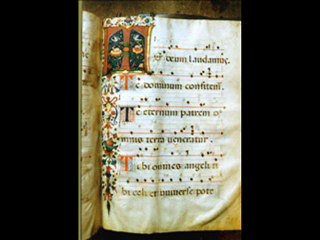 Te deum laudamus.
Te dominum confitem.
Te eternum patrem om
nis terra veneratur.
Tibi omnes angeli ti
bi celi et universe pote